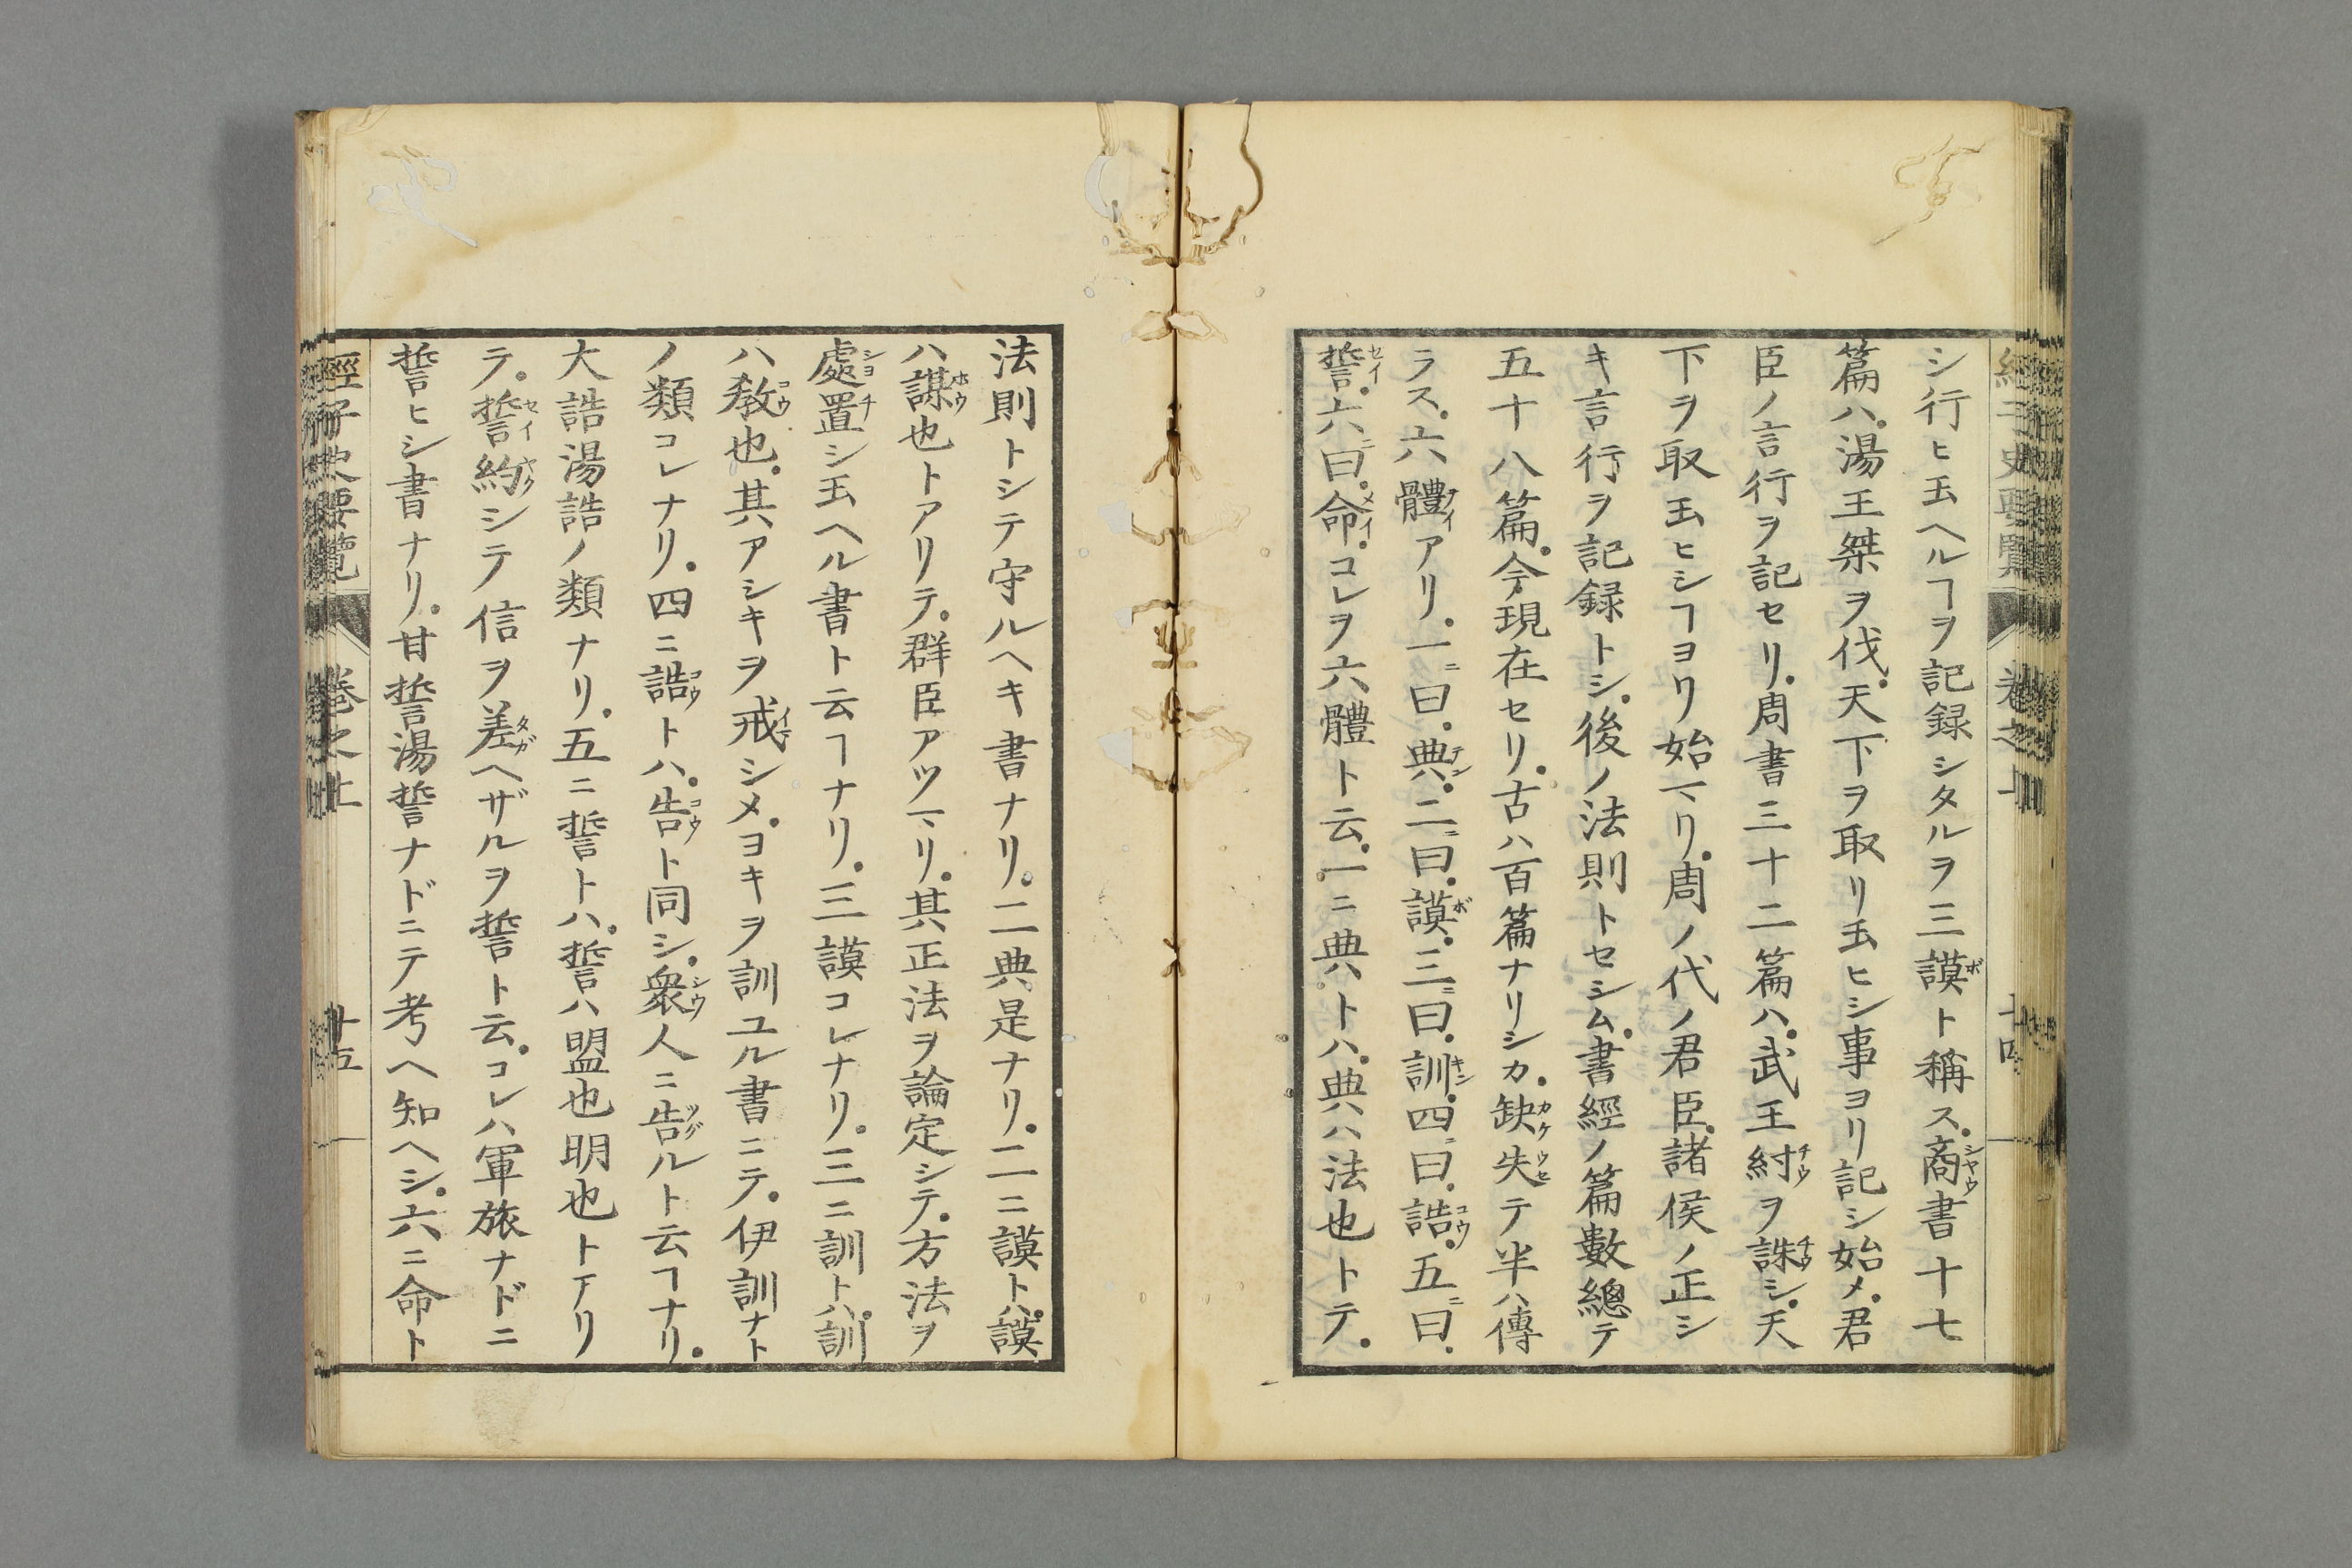 シ行ヒ玉ヘルヿヲ記録シタルヲ三謨ト稱ス。商書十七
篇ハ。湯王桀ヲ伐。天下ヲ取リ玉ヒシ事ヨリ記シ始メ。君
臣ノ言行ヲ記セリ。周書三十二篇ハ。武王紂ヲ誅シ。天
下ヲ取玉ヒシヿヨリ始マリ。周ノ代ノ君臣。諸侯ノ正シ
キ言行ヲ記録トシ。後ノ法則トセシム。書經ノ篇數總テ
五十八篇。今現在セリ。古ハ百篇ナリシカ。缺失テ半ハ傳
ラス。六體アリ。一ニ曰。典。二ニ曰。謨。三ニ曰。訓。四ニ曰。誥。五ニ曰。
誓。六ニ曰。命。コレヲ六體ト云。一ニ典トハ。典ハ法也トテ。
法則トシテ守ルヘキ書ナリ。二典是ナリ。二ニ謨トハ。謨
ハ謀也トアリテ。群臣アツマリ。其正法ヲ論定シテ。方法ヲ
處置シ玉ヘル書ト云ヿナリ。三謨コレナリ。三ニ訓トハ。訓
ハ敎也。其アシキヲ戒シメ。ヨキヲ訓ユル書ニテ。伊訓ナト
ノ類コレナリ。四ニ誥トハ。告ト同シ。衆人ニ告ルト云ヿナリ。
大誥湯誥ノ類ナリ。五ニ誓トハ。誓ハ盟也明也トアリ
テ。誓約シテ信ヲ差ヘザルヲ誓ト云。コレハ軍旅ナドニ
誓ヒシ書ナリ。甘誓湯誓ナドニテ考ヘ知ヘシ。六ニ命ト
經子史要覽 卷之上 十五